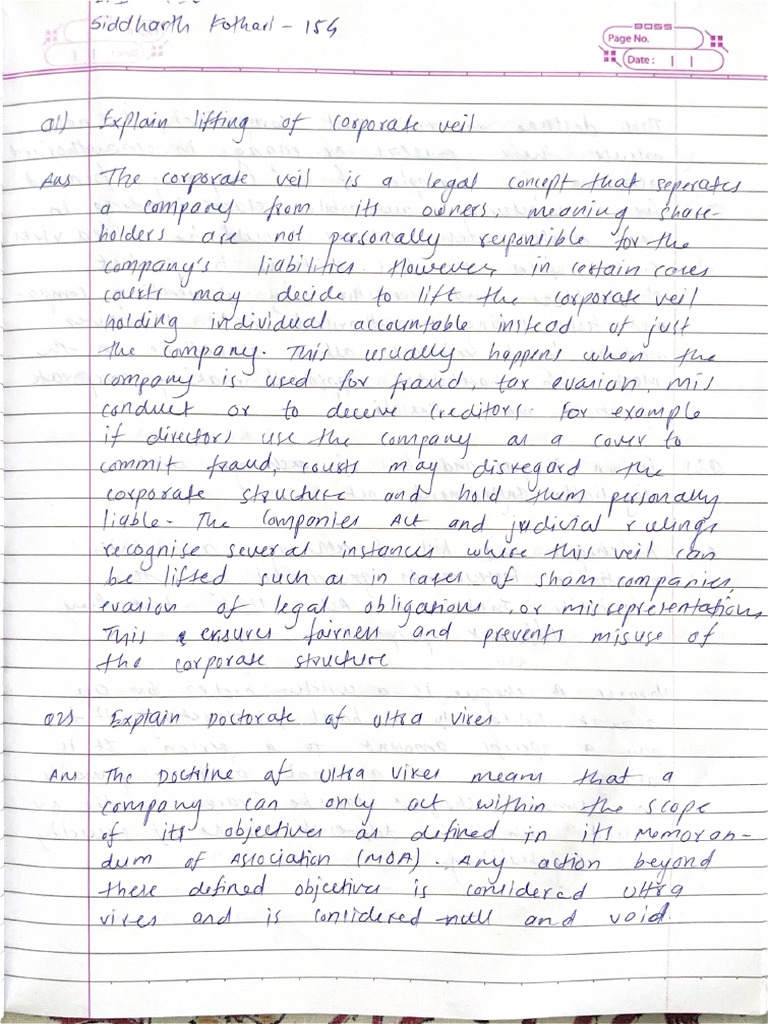 Siddharth Kothari - 154
BOSS
Page No.
Date :
Q1) Explain lifting of corporate veil
Ans The corporate veil is a legal concept that seperates
a company from its owners, meaning share-
holders are not personally responsible for the
company's liabilities. However, in certain cases
courts may decide to lift the corporate veil
holding individual accountable instead of just
the company. This usually happens when the
company is used for fraud, tax evasion, mis
conduct or to deceive creditors. For example
if directors use the company as a cover to
commit fraud, courts may disregard the
corporate structure and hold them personally
liable. The Companies Act and judicial rulings
recognise several instances where this veil can
be lifted such as in cases of sham companies,
evasion of legal obligations, or misrepresentation,
This ensures fairness and prevents misuse of
the corporate structure
Q2) Explain Doctorate of Ultra Vires
Ans The Doctrine of Ultra Vires means that a
company can only act within the scope
of its objectives as defined in its Memoran-
dum of Association (MOA). Any action beyond
these defined objectives is considered Ultra
vires and is considered null and void.